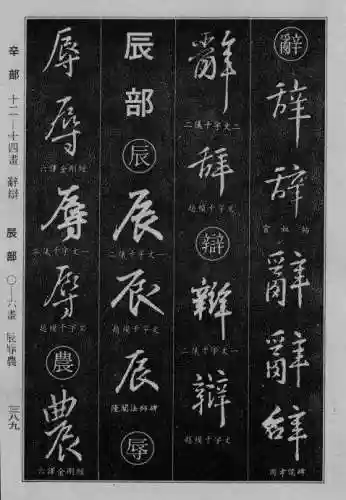 辭
辞
辞
官奴帖
辭
辭
辞
周孝侯碑
辭
二儀千字文二
辞
趙模千字文
辯
辯
二儀千字文一
辯
趙模千字文
辰部
辰
辰
二儀千字文一
辰
趙模千字文
辰
隆闡法師碑
辱
辱
辱
六譯金剛經
辱
二儀千字文一
辱
趙模千字文
農
農
六譯金剛經
辛部 十二—十四畫 辭辯 辰部 〇—六畫 辰辱農 三八九